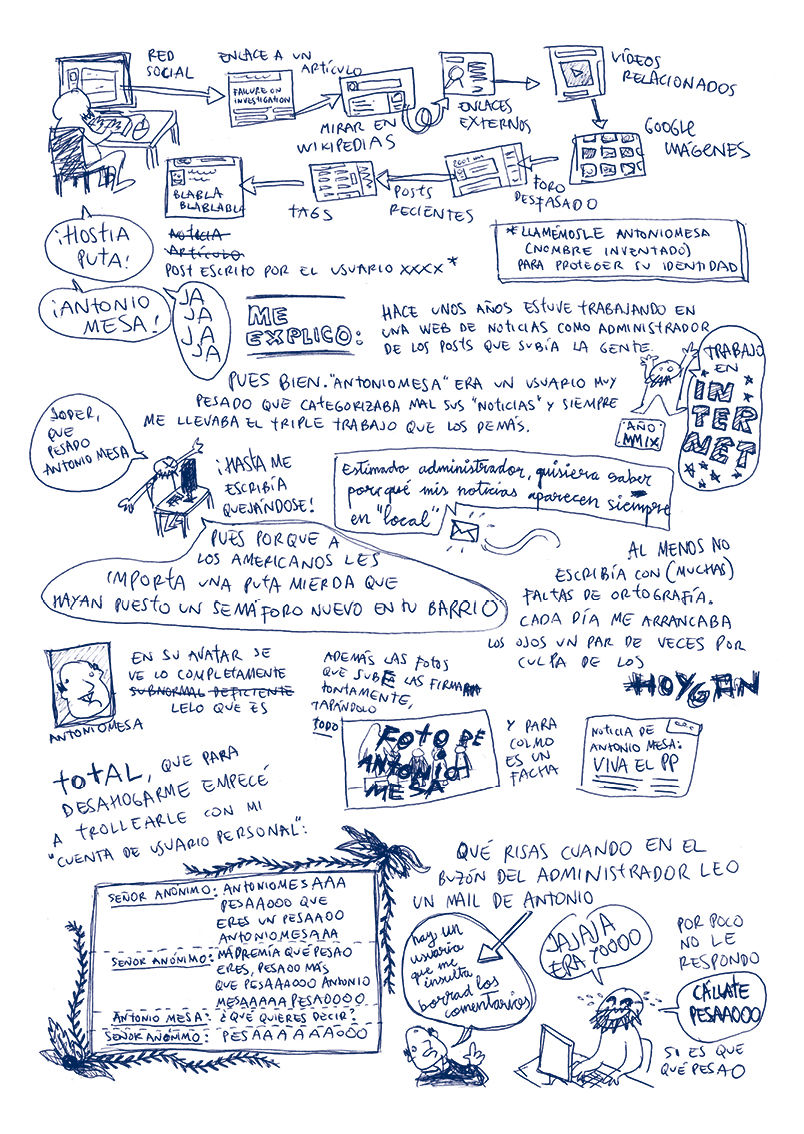 RED
SOCIAL
ENLACE A UN
ARTÍCULO
FAILURE ON
INVESTIGATION
MIRAR EN
WIKIPEDIAS
ENLACES
EXTERNOS
VÍDEOS
RELACIONADOS
GOOGLE
IMÁGENES
FORO
DESFASADO
POSTS
RECIENTES
TAGS
BLABLA
BLABLABLA
¡HOSTIA
PUTA!
NOTICIA
ARTÍCULO
POST ESCRITO POR EL USUARIO XXXX*
* LLAMÉMOSLE ANTONIOMESA
(NOMBRE INVENTADO)
PARA PROTEGER SU IDENTIDAD
¡ANTONIO
MESA!
JA
JA
JA
JA
ME
EXPLICO:
HACE UNOS AÑOS ESTUVE TRABAJANDO EN
UNA WEB DE NOTICIAS COMO ADMINISTRADOR
DE LOS POSTS QUE SUBÍA LA GENTE.
TRABAJO
EN
IN
TER
NET
AÑO
MMIX
PUES BIEN. "ANTONIOMESA" ERA UN USUARIO MUY
PESADO QUE CATEGORIZABA MAL SUS "NOTICIAS" Y SIEMPRE
ME LLEVABA EL TRIPLE TRABAJO QUE LOS DEMÁS.
JODER,
QUE
PESADO
ANTONIO MESA
¡HASTA ME
ESCRIBÍA
QUEJÁNDOSE!
Estimado administrador, quisiera saber
porqué mis noticias aparecen siempre
en "local"
PUES PORQUE A
LOS AMERICANOS LES
IMPORTA UNA PUTA MIERDA QUE
HAYAN PUESTO UN SEMÁFORO NUEVO EN TU BARRIO
AL MENOS NO
ESCRIBÍA CON (MUCHAS)
FALTAS DE ORTOGRAFÍA.
CADA DÍA ME ARRANCABA
LOS OJOS UN PAR DE VECES POR
CULPA DE LOS
HOYGAN
ANTONIOMESA
EN SU AVATAR SE
VE LO COMPLETAMENTE
SUBNORMAL DEFICIENTE
LELO QUE ES
ADEMÁS LAS FOTOS
QUE SUBE LAS FIRMA
TONTAMENTE,
TAPÁNDOLO
TODO
FOTO DE
ANTONIO
MESA
Y PARA
COLMO
ES UN
FACHA
NOTICIA DE
ANTONIO MESA:
VIVA EL PP
TOTAL, QUE PARA
DESAHOGARME EMPECÉ
A TROLLEARLE CON MI
"CUENTA DE USUARIO PERSONAL":
SEÑOR ANÓNIMO: ANTONIOMESAAA
PESAAOOO QUE
ERES UN PESAAOO
ANTONIOMESAAA
SEÑOR ANÓNIMO: MADREMÍA QUÉ PESAO
ERES, PESAOO MÁS
QUE PESAAAOOO ANTONIO
MESAAAAA PESAOOOO
ANTONIO MESA: ¿QUÉ QUIERES DECIR?
SEÑOR ANÓNIMO: PESAAAAAAOOO
QUÉ RISAS CUANDO EN EL
BUZÓN DEL ADMINISTRADOR LEO
UN MAIL DE ANTONIO
hay un
usuario
que me
insulta
borrad los
comentarios
JAJAJA
ERA YOOOO
POR POCO
NO LE
RESPONDO
CÁLLATE
PESAAOOO
SI ES QUE
QUÉ PESAO